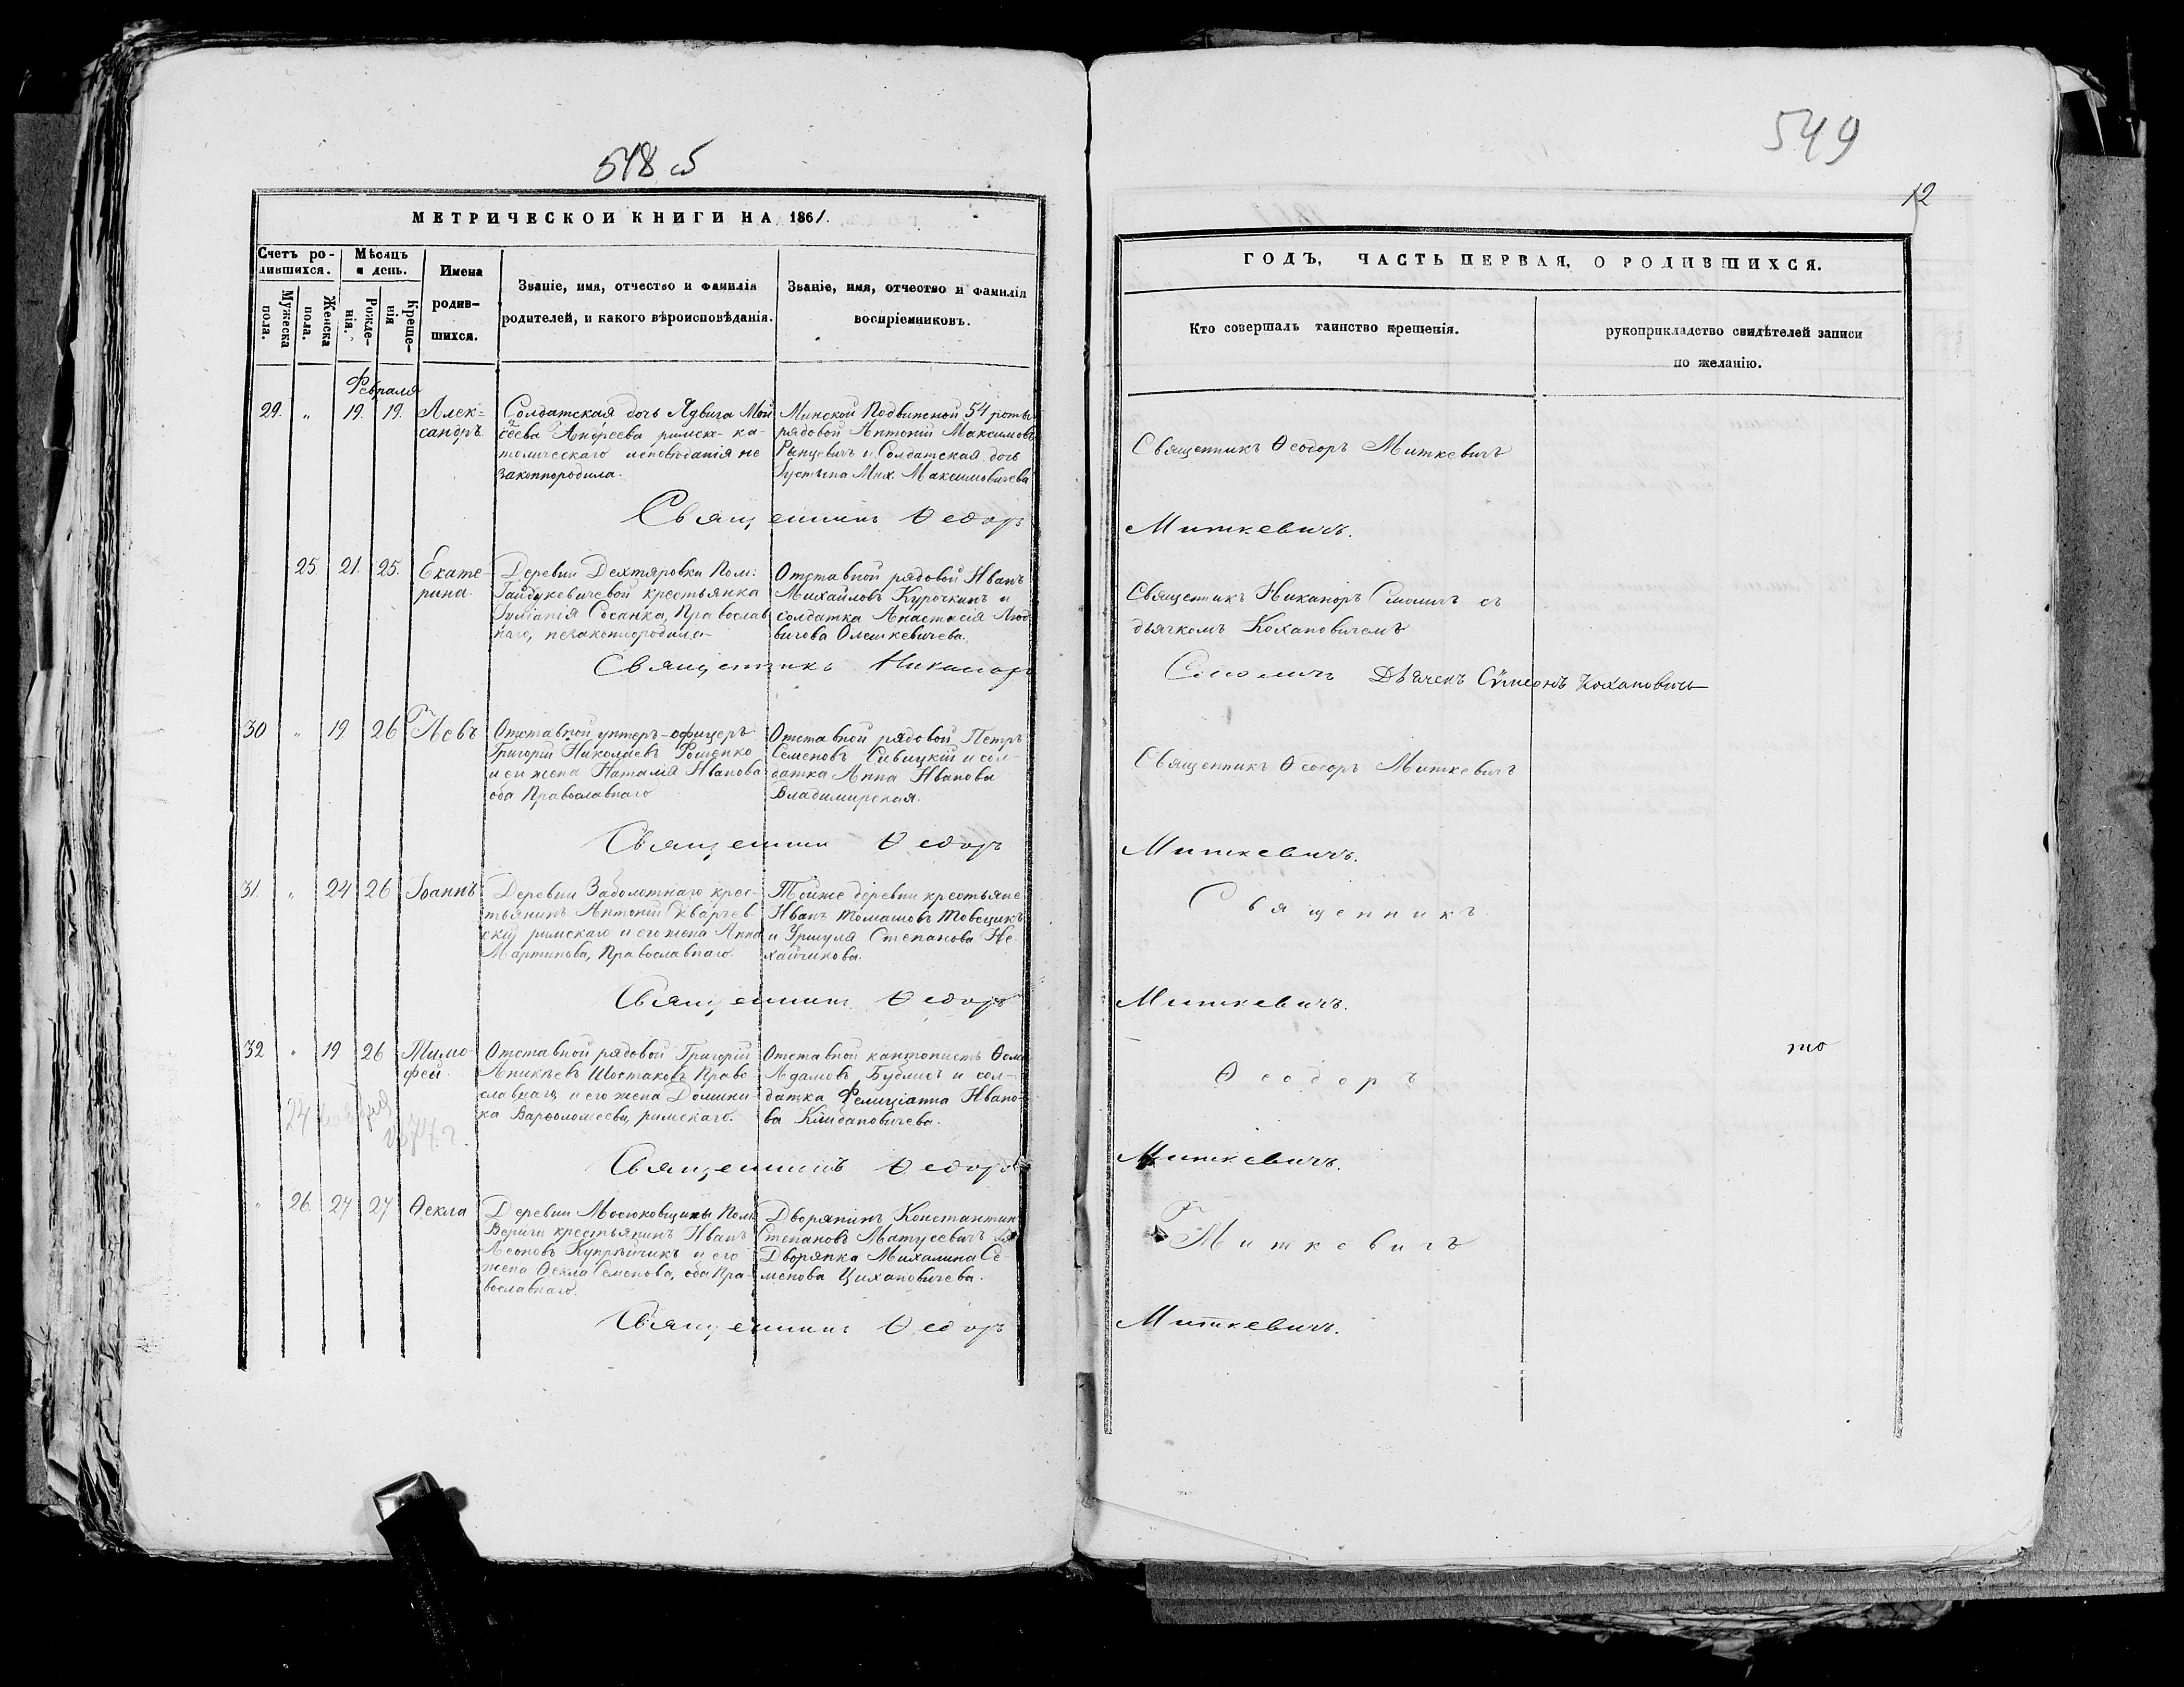 548 об
МЕТРИЧЕСКОЙ КНИГИ НА 1861.
Счетъ ро-
дившихся.
Мѣсяцъ
и день.
Имена
родив-
шихся.
Званіе, имя, отчество и фамилія
родителей, и какого вѣроисповѣданія.
Званіе, имя, отчество и фамилія
воспріемниковъ.
Мужеска
пола.
Женска
пола.
Рожде-
нія.
Креще-
нія
Февраля
29. „ 19. 19. Алек-
сандръ
Солдатская дочь Ядвига Мои
сеева Андреева римско-ка-
толическаго исповѣданія не
законнородила.
Минской Подвижной 54 роты
рядовой Антоній Максимовъ
и Солдатская дочь
Мих. Максимовичева
Священникъ Ѳедоръ
25 21. 25. Екате-
рина.
Деревни Дехтяровки Пом:
Гайдукевичевой крестьянка
Іуліанія Сосанка, Православ
наго, незаконнородила
Отставной рядовой Иванъ
Михайловъ Курочкинъ и
солдатка Анастасія Люд
вигова Олешкевичева.
Священникъ Никаноръ
30 „ 19 26 Левъ
Отставной унтеръ-офицеръ
Григорій Николаевъ Фощенко
и его жена Наталія Иванова
оба Православнаго
Отставной рядовой Петръ
Семеновъ Сивицкій и сол-
датка Анна Иванова
Владимирская.
Священникъ Ѳедоръ
31. „ 24 26 Іоаннъ
Деревни Заболотнаго крес-
тьянинъ Антоній Скварчев
скій римскаго и его жена Анна
Мартинова, Православнаго.
Тойже деревни крестьяне
Иванъ Томашовъ
и Уршуля Степанова Не-
хайчикова.
Священникъ Ѳедоръ
32 „ 19 26 Тимо-
фей.
Отставной рядовой Григорій
Аникѣевъ Шостаковъ Право-
славнаго и его жена Домини-
ка Варѳоломеева, римскаго.
Отставной кантонистъ Ѳома
Адамовъ Бублисъ и сол-
датка Фелиціанна Ивано-
ва
24
Священникъ Ѳедоръ
„ 26 27 27 Ѳекла
Деревни Мосюковщины Пом:
Вериги крестьянинъ Иванъ
Леоновъ Купрейчикъ и его
жена Ѳекла Семенова, оба Пра-
вославнаго.
Дворянинъ Константинъ
Степановъ Матусевичъ
Дворянка Михалина Се-
менова Цихановичева.
Священникъ Ѳедоръ
549
12
ГОДЪ, ЧАСТЬ ПЕРВАЯ, О РОДИВШИХСЯ.
Кто совершалъ таинство крещенія.
рукоприкладство свидѣтелей записи
по желанію.
Священникъ Ѳеодоръ Миткевичъ
Миткевичъ.
Священникъ Никаноръ Смоличъ съ
дьячкомъ Кохановичемъ
Смоличъ Дьячекъ Сѵмеонъ Кохановичъ
Священникъ Ѳеодоръ Миткевичъ
Миткевичъ.
Священникъ
Миткевичъ.
то
Ѳеодоръ
Миткевичъ.
Миткевичъ
Миткевичъ.